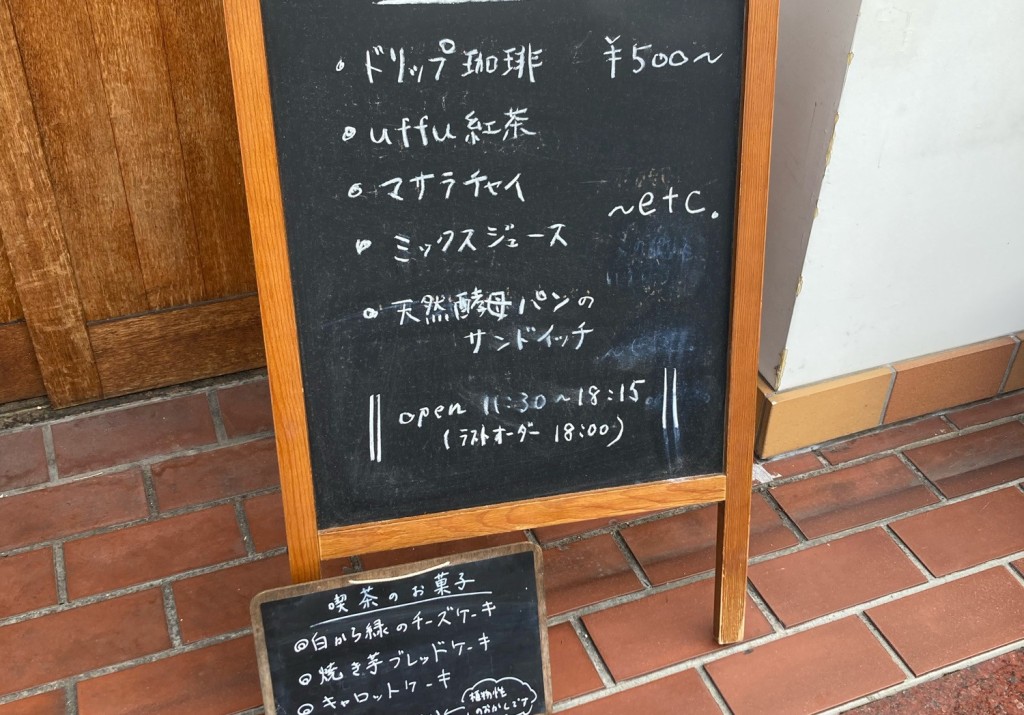 ・ドリップ珈琲 ¥500〜
・uffu紅茶
・マサラチャイ
〜etc.
・ミックスジュース
・天然酵母パンの
サンドイッチ
open 11:30〜18:15
(ラストオーダー 18:00)
喫茶のお菓子
◎白から緑のチーズケーキ
◎焼き芋ブレッドケーキ
◎キャロットケーキ
植物性
のおかしです